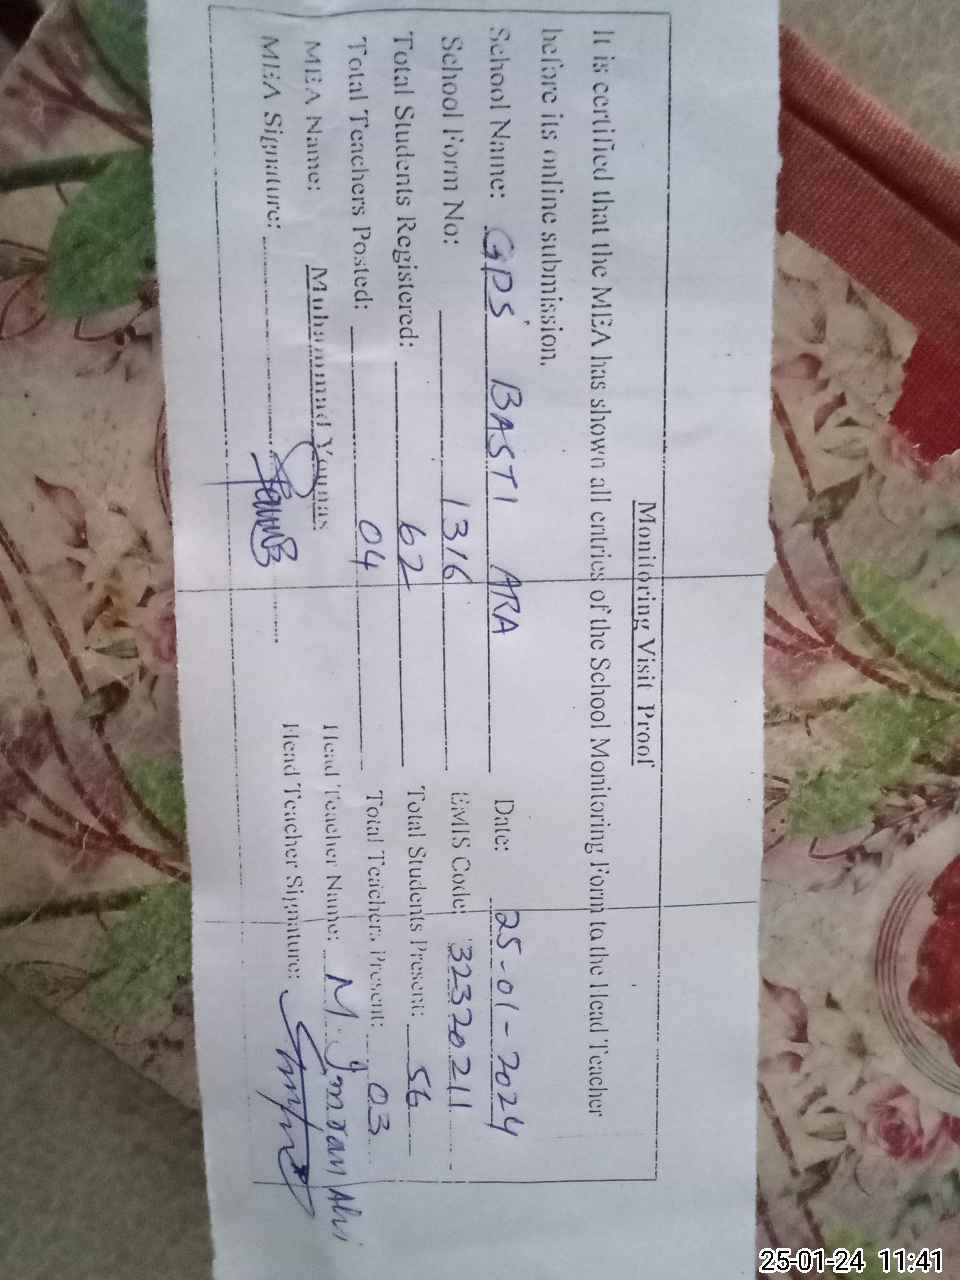 Monitoring Visit Proof
It is certified that the MEA has shown all entries of the School Monitoring Form to the Head Teacher
before its online submission.
School Name: GPS BASTI ARA Date: 25-01-2024
School Form No: 1316 EMIS Code: 32320211
Total Students Registered: 62 Total Students Present: 56
Total Teachers Posted: 04 Total Teachers Present: 03
MEA Name: Muhammad Younas Head Teacher Name: M. Imran Alvi
MEA Signature: Head Teacher Signature:
25-01-24 11:41